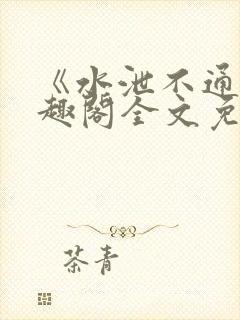 《水泄不通
趣阁全文免
茶青